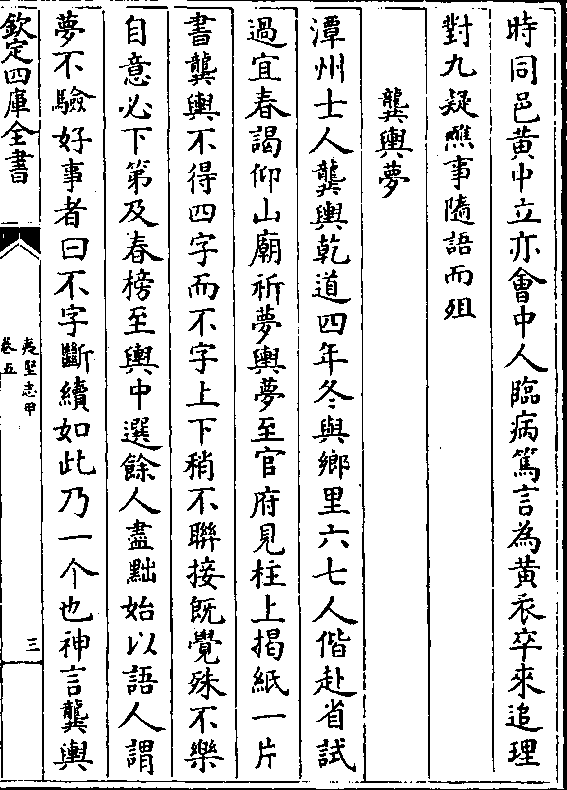 時同邑黃中立亦會中人臨病篤言為黃衣卒來追理
對九疑醮事隨語而殂
龔輿夢
潭州士人龔輿乾道四年冬與鄉里六七人偕赴省試
過宜春謁仰山廟祈夢輿夢至官府見柱上揭紙一片
書龔輿不得四字而不字上下稍不聯接既覺殊不樂
自意必下第及春榜至輿中選餘人盡黜始以語人謂
夢不驗好事者曰不字斷續如此乃一个也神言龔輿
欽定四庫全書
夷堅志甲
卷五
三